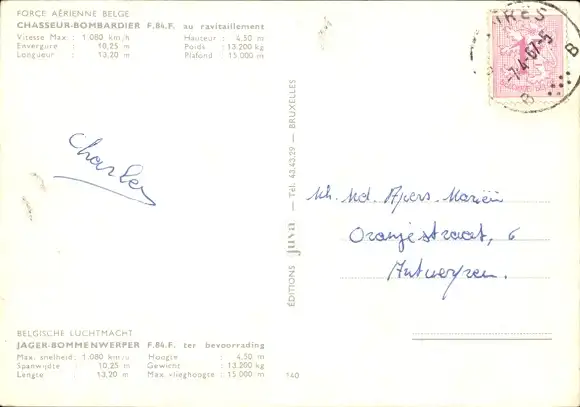 FORCE AÉRIENNE BELGE
CHASSEUR-BOMBARDIER F.84.F. au ravitaillement
Vitesse Max : 1.080 km/h Hauteur : 4,50 m
Envergure : 10,25 m Poids : 13.200 kg
Longueur : 13,20 m Plafond : 15.000 m
-7.4.67-5
B
B
Charles
Mh. Md. Apers-Mariën
Oranjestraat, 6
Antwerpen.
ÉDITIONS juva — Tél. 43.43.29 — BRUXELLES
BELGISCHE LUCHTMACHT
JAGER-BOMMENWERPER F.84.F. ter bevoorrading
Max. snelheid : 1.080 km/u Hoogte : 4,50 m
Spanwijdte : 10,25 m Gewicht : 13.200 kg
Lengte : 13,20 m Max. vlieghoogte : 15.000 m
140